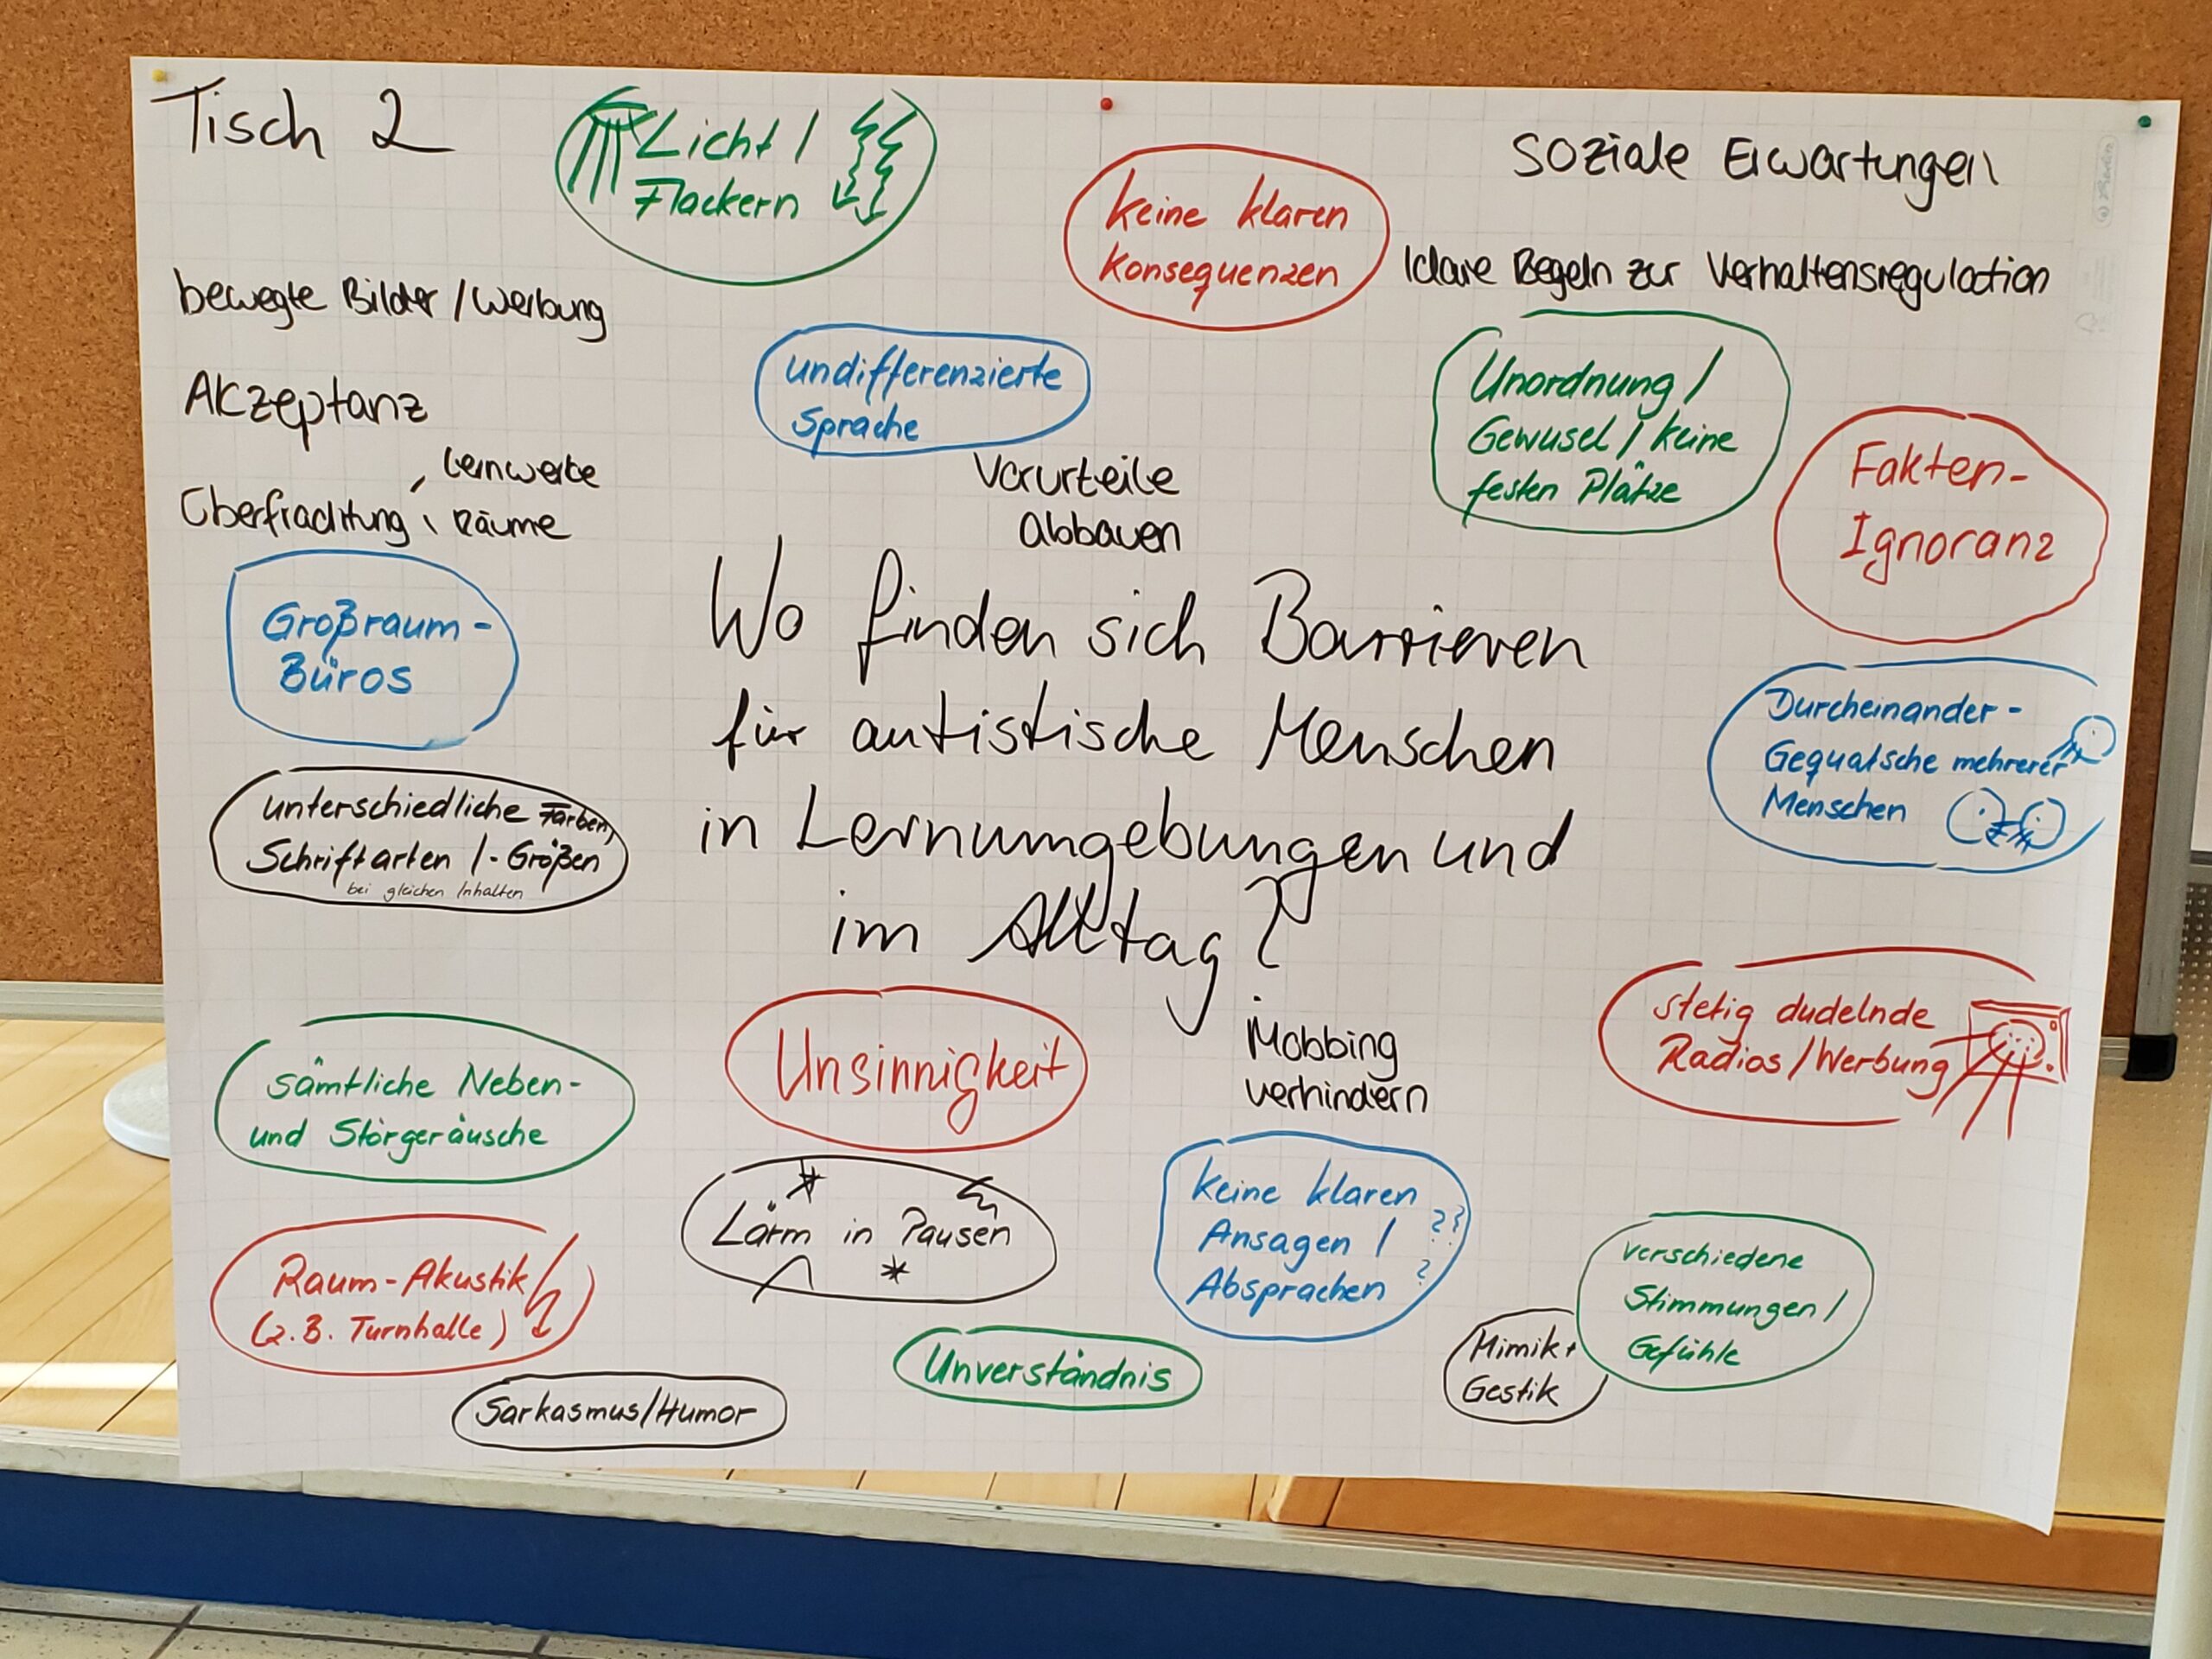 Tisch 2
Licht /
Flackern
keine klaren
Konsequenzen
Soziale Erwartungen
klare Regeln zur Verhaltensregulation
bewegte Bilder / Werbung
undifferenzierte
Sprache
Unordnung /
Gewusel / keine
festen Plätze
Akzeptanz
Fakten-
Ignoranz
Überfrachtung
Lernwerke
Räume
Vorurteile
abbauen
Großraum-
Büros
Wo finden sich Barrieren
für autistische Menschen
in Lernumgebungen und
im Alltag?
Durcheinander-
Gequatsche mehrerer
Menschen
unterschiedliche Farben,
Schriftarten /-Größen
bei gleichen Inhalten
stetig dudelnde
Radios / Werbung
sämtliche Neben-
und Störgeräusche
Unsinnigkeit
Mobbing
verhindern
Lärm in Pausen
keine klaren
Ansagen / ??
Absprachen ?
Raum-Akustik
(z.B. Turnhalle)
verschiedene
Stimmungen /
Gefühle
Mimik +
Gestik
Unverständnis
Sarkasmus/Humor